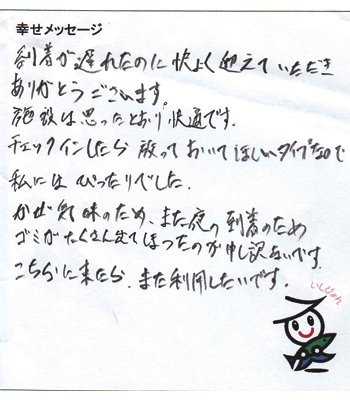 幸せメッセージ
到着が遅れたのに快よく迎えていただき
ありがとうございます。
施設は思ったとおり快適です。
チェックインしたら放っておいてほしいタイプなので
私にはぴったりでした。
かぜ気味のため、また夜の到着のため
ゴミがたくさん出てしまったのが申し訳ないです。
こちらに来たら、また利用したいです。